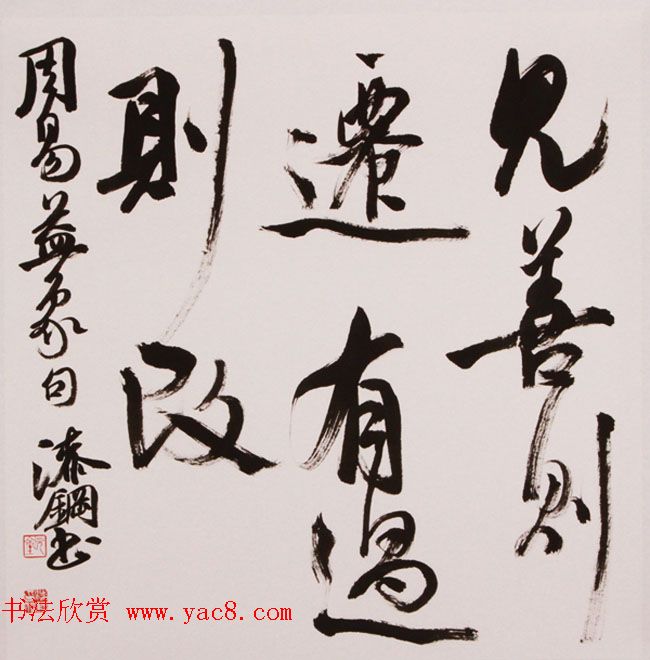 見善則
遷有過
則改
周易益象句
漆鋼书
书法欣赏 www.yac8.com